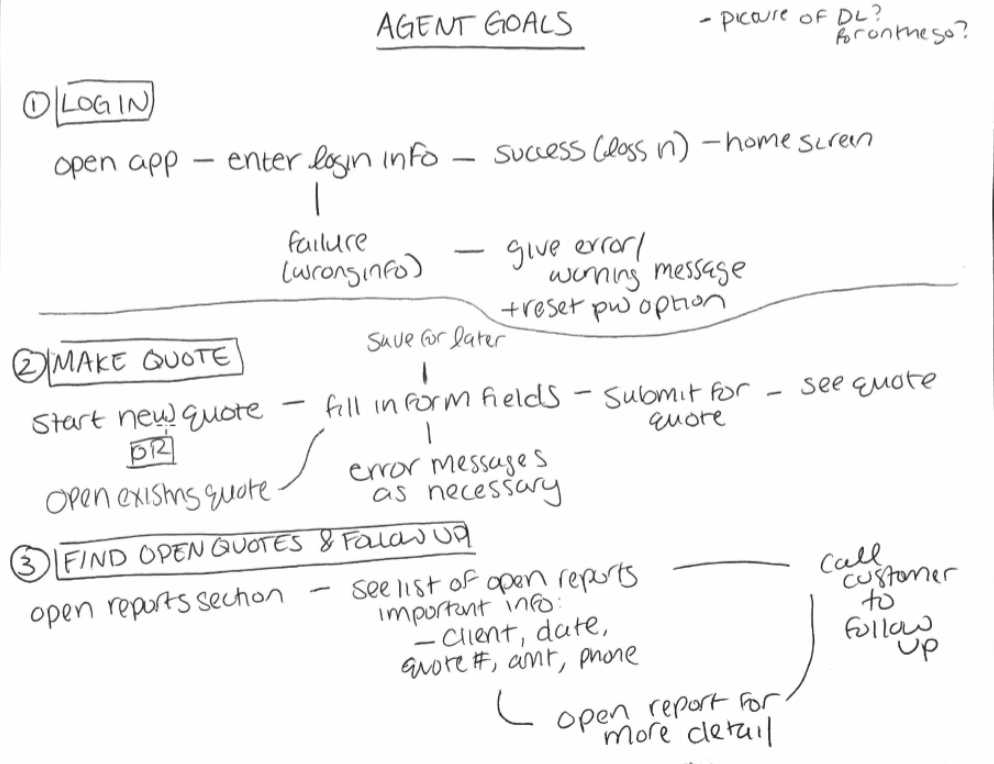 AGENT GOALS
- picture of DL?
for on the go?
① LOGIN
open app - enter login info - success - home screen
failure
(wrong info) - give error/
warning message
+ reset pw option
save for later
② MAKE QUOTE
start new quote - fill in form fields - submit for
quote - see quote
OR
open existing quote
error messages
as necessary
③ FIND OPEN QUOTES & FOLLOW UP
open reports section - see list of open reports
important info:
- client, date,
quote #, amt, phone
call
customer
to
follow
up
open report for
more detail